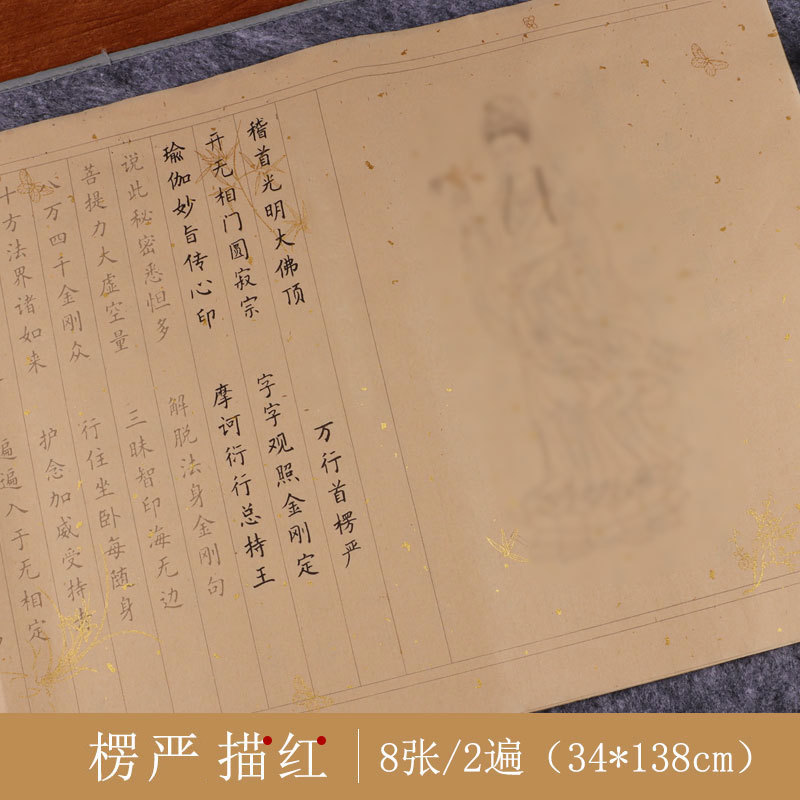 稽首光明大佛顶 万行首楞严
开无相门圆寂宗 字字观照金刚定
瑜伽妙旨传心印 摩诃衍行总持王
说此秘密悉怛多 解脱法身金刚句
菩提力大虚空量 三昧智印海无边
八万四千金刚众 行住坐卧每随身
十方法界诸如来 护念加威受持者
遍入于无相定
楞严描红 8张/2遍（34*138cm）